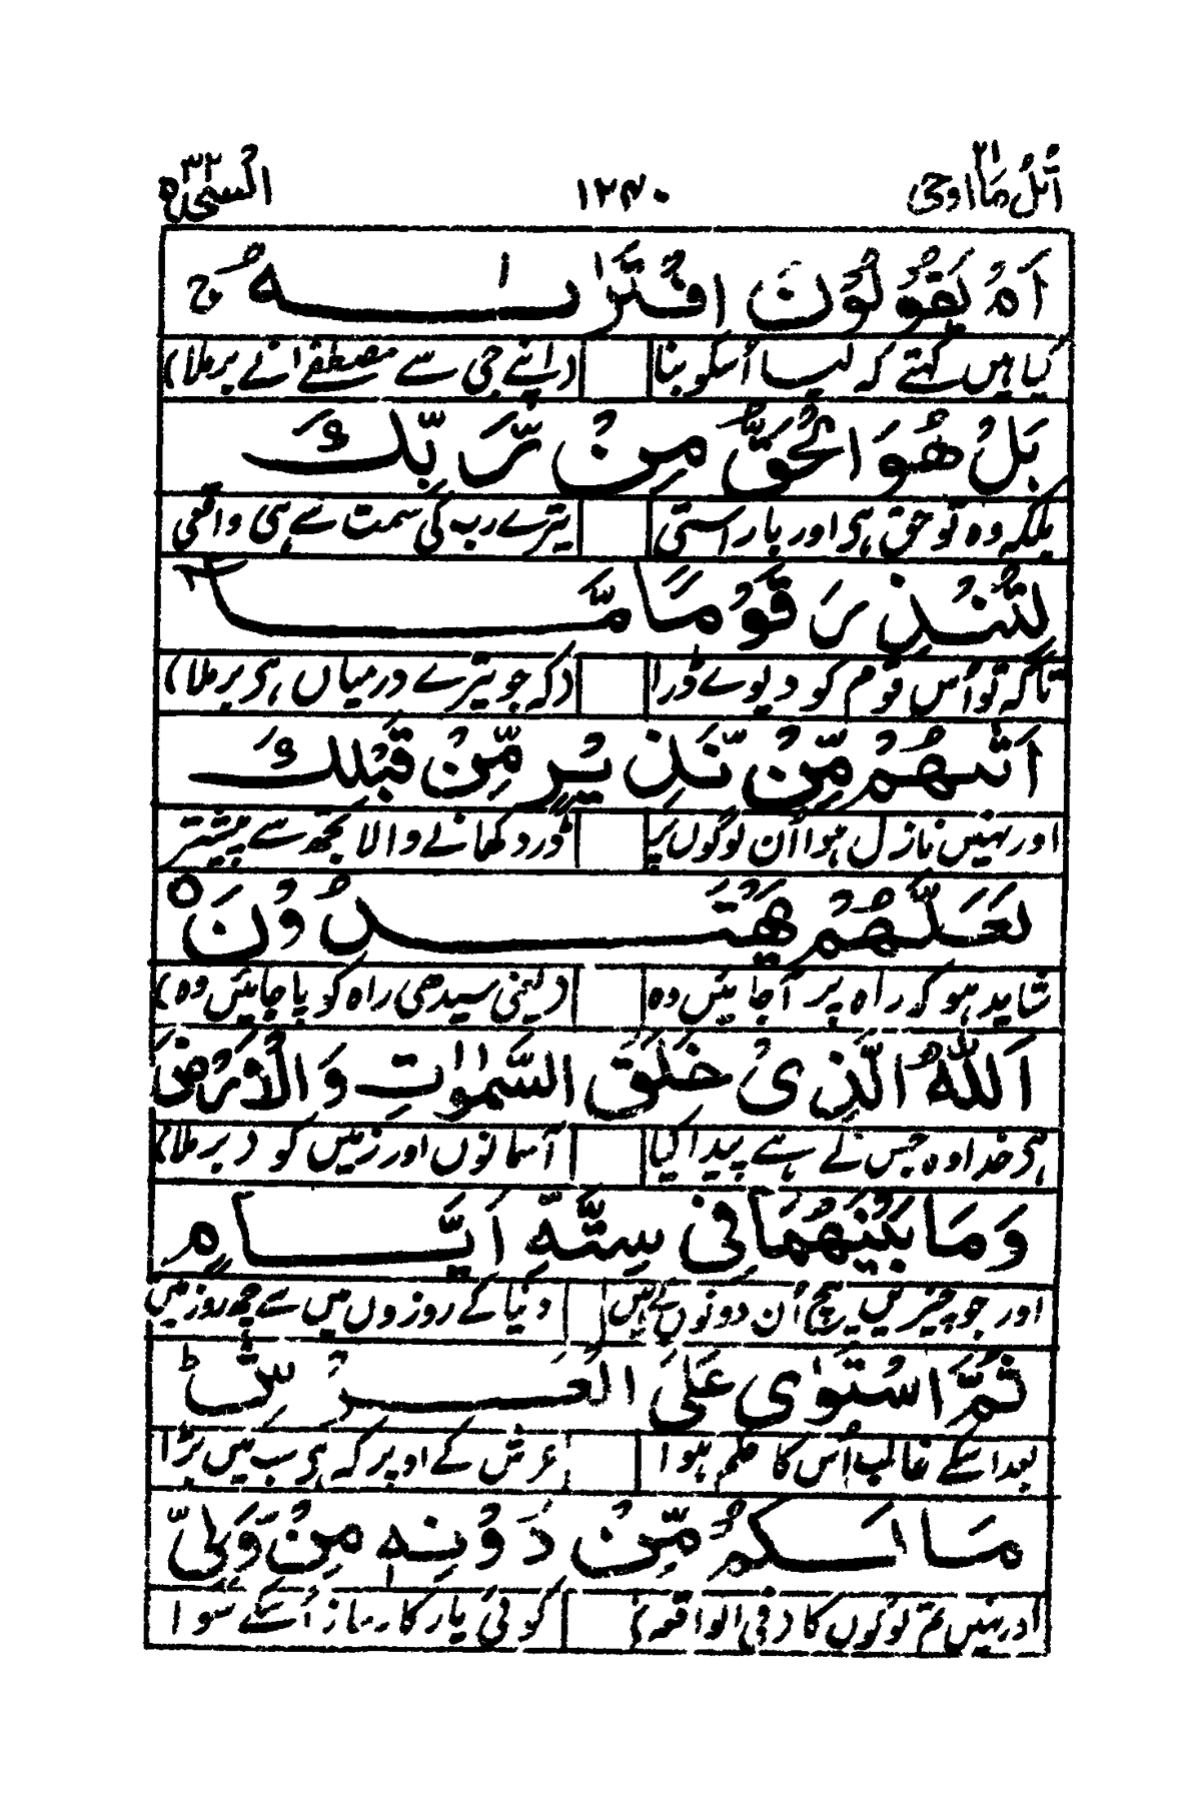 اتل ما اوحی ٢١ ١٢٤٠ السجدة ٣٢
اَمْ يَقُوْلُوْنَ افْتَرٰىهُ ۚ
کیا ہیں کہتے کہ لیا اُسکو بنا (اپنے جی سے مصطفےٰ نے برملا)
بَلْ هُوَ الْحَقُّ مِنْ رَّبِّكَ
بلکہ وہ تو حق ہی اور با راستی تیرے رب کی سمت سے ہی واقعی
لِتُنْذِرَ قَوْمًا مَّآ
تاکہ تو اُس قوم کو دیوے ڈرا (کہ جو تیرے درمیاں ہی برملا)
اَتٰىهُمْ مِّنْ نَّذِيْرٍ مِّنْ قَبْلِكَ
اور نہیں نازل ہوا اُن لوگوں پر ڈور دکھانے والا تجھ سے پیشتر
لَعَلَّهُمْ يَهْتَدُوْنَ ۝
شاید ہو کہ راہ پر آجائیں وہ (یعنی سیدھی راہ کو پا جائیں وہ)
اَللّٰهُ الَّذِيْ خَلَقَ السَّمٰوٰتِ وَالْاَرْضَ
ہی خدا وہ جس نے ہے پیدا کیا آسمانوں اور زمیں کو (برملا)
وَمَا بَيْنَهُمَا فِيْ سِتَّةِ اَيَّامٍ
اور جو چیزیں بیچ اُن دونوں کے ہیں دنیا کے روزوں میں سے چھ روز میں
ثُمَّ اسْتَوٰى عَلَى الْعَرْشِ ؕ
بعد اسکے غالب اُس کا حکم ہوا عرش کے اوپر کہ ہی سب میں بڑا
مَا لَكُمْ مِّنْ دُوْنِهٖ مِنْ وَّلِيٍّ
اور نہیں تم لوگوں کا (فی الواقعہ) کوئی یار کارساز اُسکے سوا